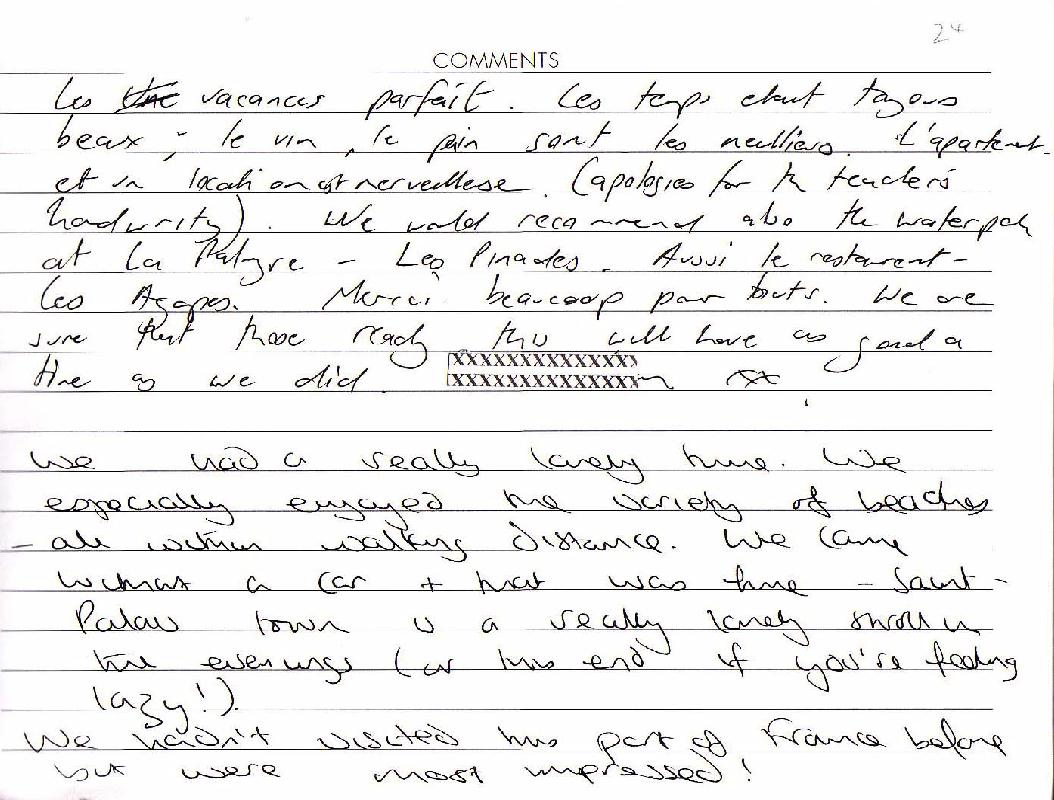 24
COMMENTS
Les vacances parfait. Les temps etait
beaux; le vin, le pain sont les meilliers. L'apartent
et un location est merveillese. (apologies for the teacher's
handwriting). We would recommend also the waterpark
at La Palmyre - Les Pinades. Aussi le restaurent -
Les Agapes. Merci beaucoup pour touts. We are
sure that those reading this will have as good a
time as we did. XXXXXXXXXXXXXX
XXXXXXXXXXXXXX
We had a really lovely time. We
especially enjoyed the variety of beaches
- all within walking distance. We came
without a car + that was fine - Saint-
Palais town is a really lovely stroll in
the evenings (or this end if you're feeling
lazy!).
We hadn't visited this part of France before
but were most impressed!